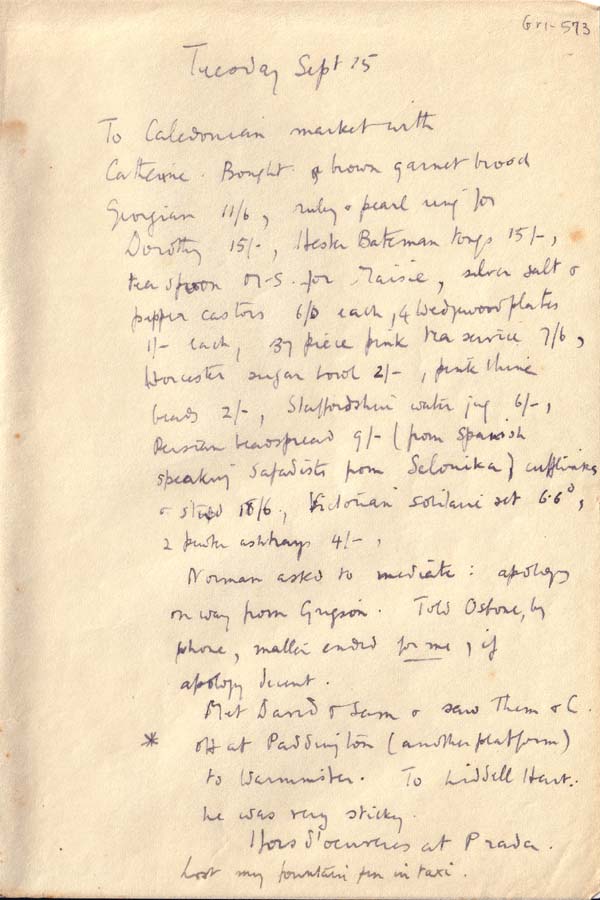 Gr1-573
Tuesday Sept 25
To Caledonian market with
Catherine. Bought brown garnet brooch
Georgian 11/6, ruby & pearl ring for
Dorothy 15/-, Hester Bateman tongs 15/-,
tea spoon for Maisie, silver salt &
pepper castors 6/0 each, 4 Wedgwood plates
1/- each, 37 piece pink tea service 7/6,
Worcester sugar bowl 2/-, pink
beads 2/-, Staffordshire water jug 6/-,
Persian bedspread 9/- (from Spanish
speaking from Salonika) cufflinks
& stud 18/6, Victorian solitaire set 6.6,
2 pewter ashtrays 4/-,
Norman asked to mediate: apology
on way from Grigson. Told by
phone, matter ended for me, if
apology decent.
Met David & Sam & saw them & C.
* off at Paddington (another platform)
to Warminster. To Liddell Hart.
he was very sticky.
Hors d'oeuvres at Prada.
Lost my fountain pen in taxi.